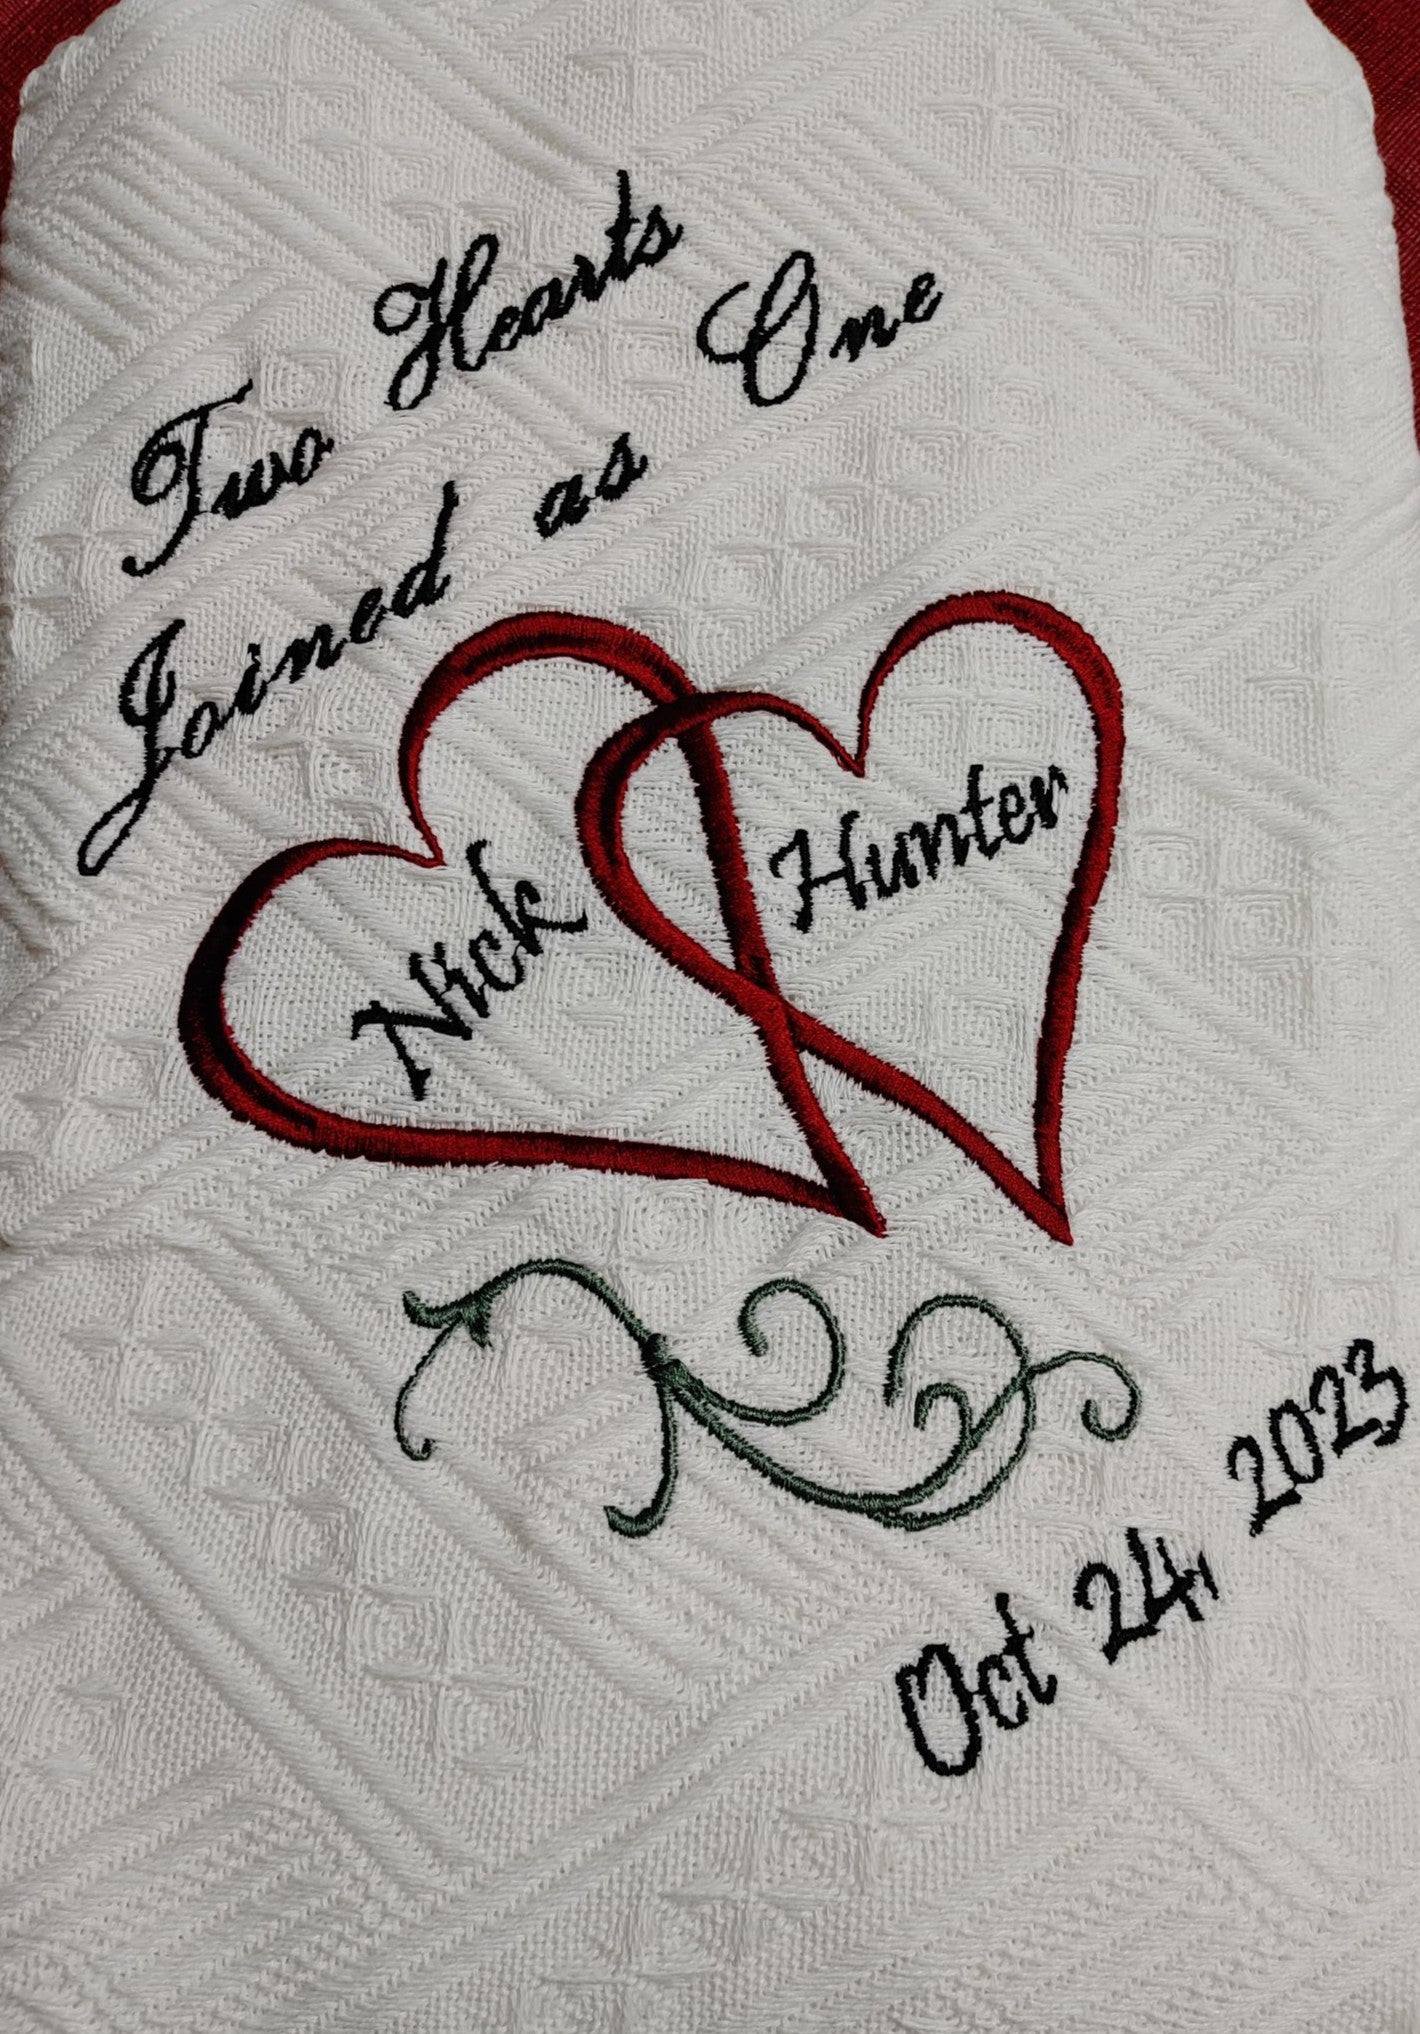 Two Hearts
Joined as One
Nick
Hunter
Oct 24, 2023